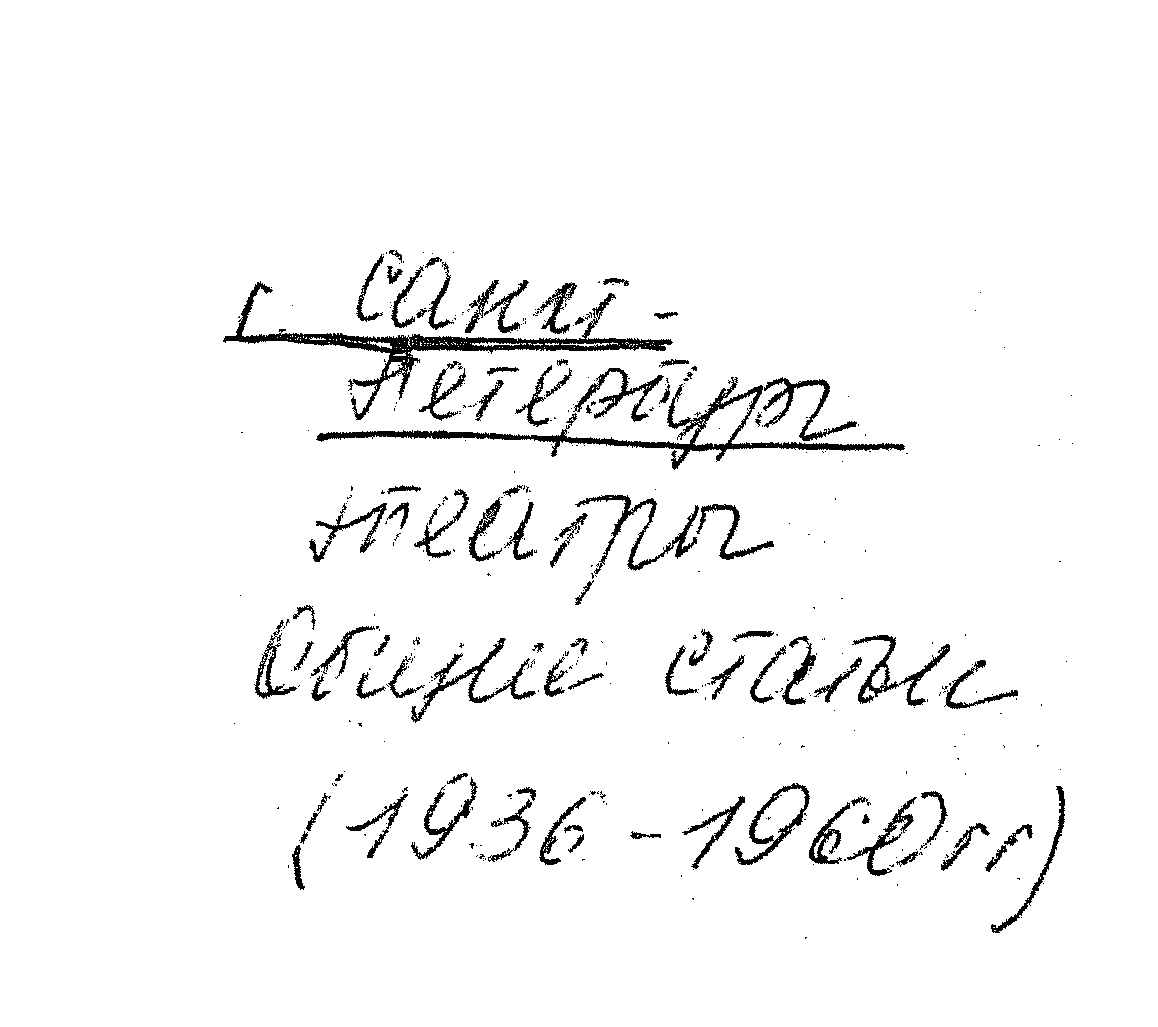 г. Санкт-
Петербург
театры
Общие статьи
(1936-1960гг)